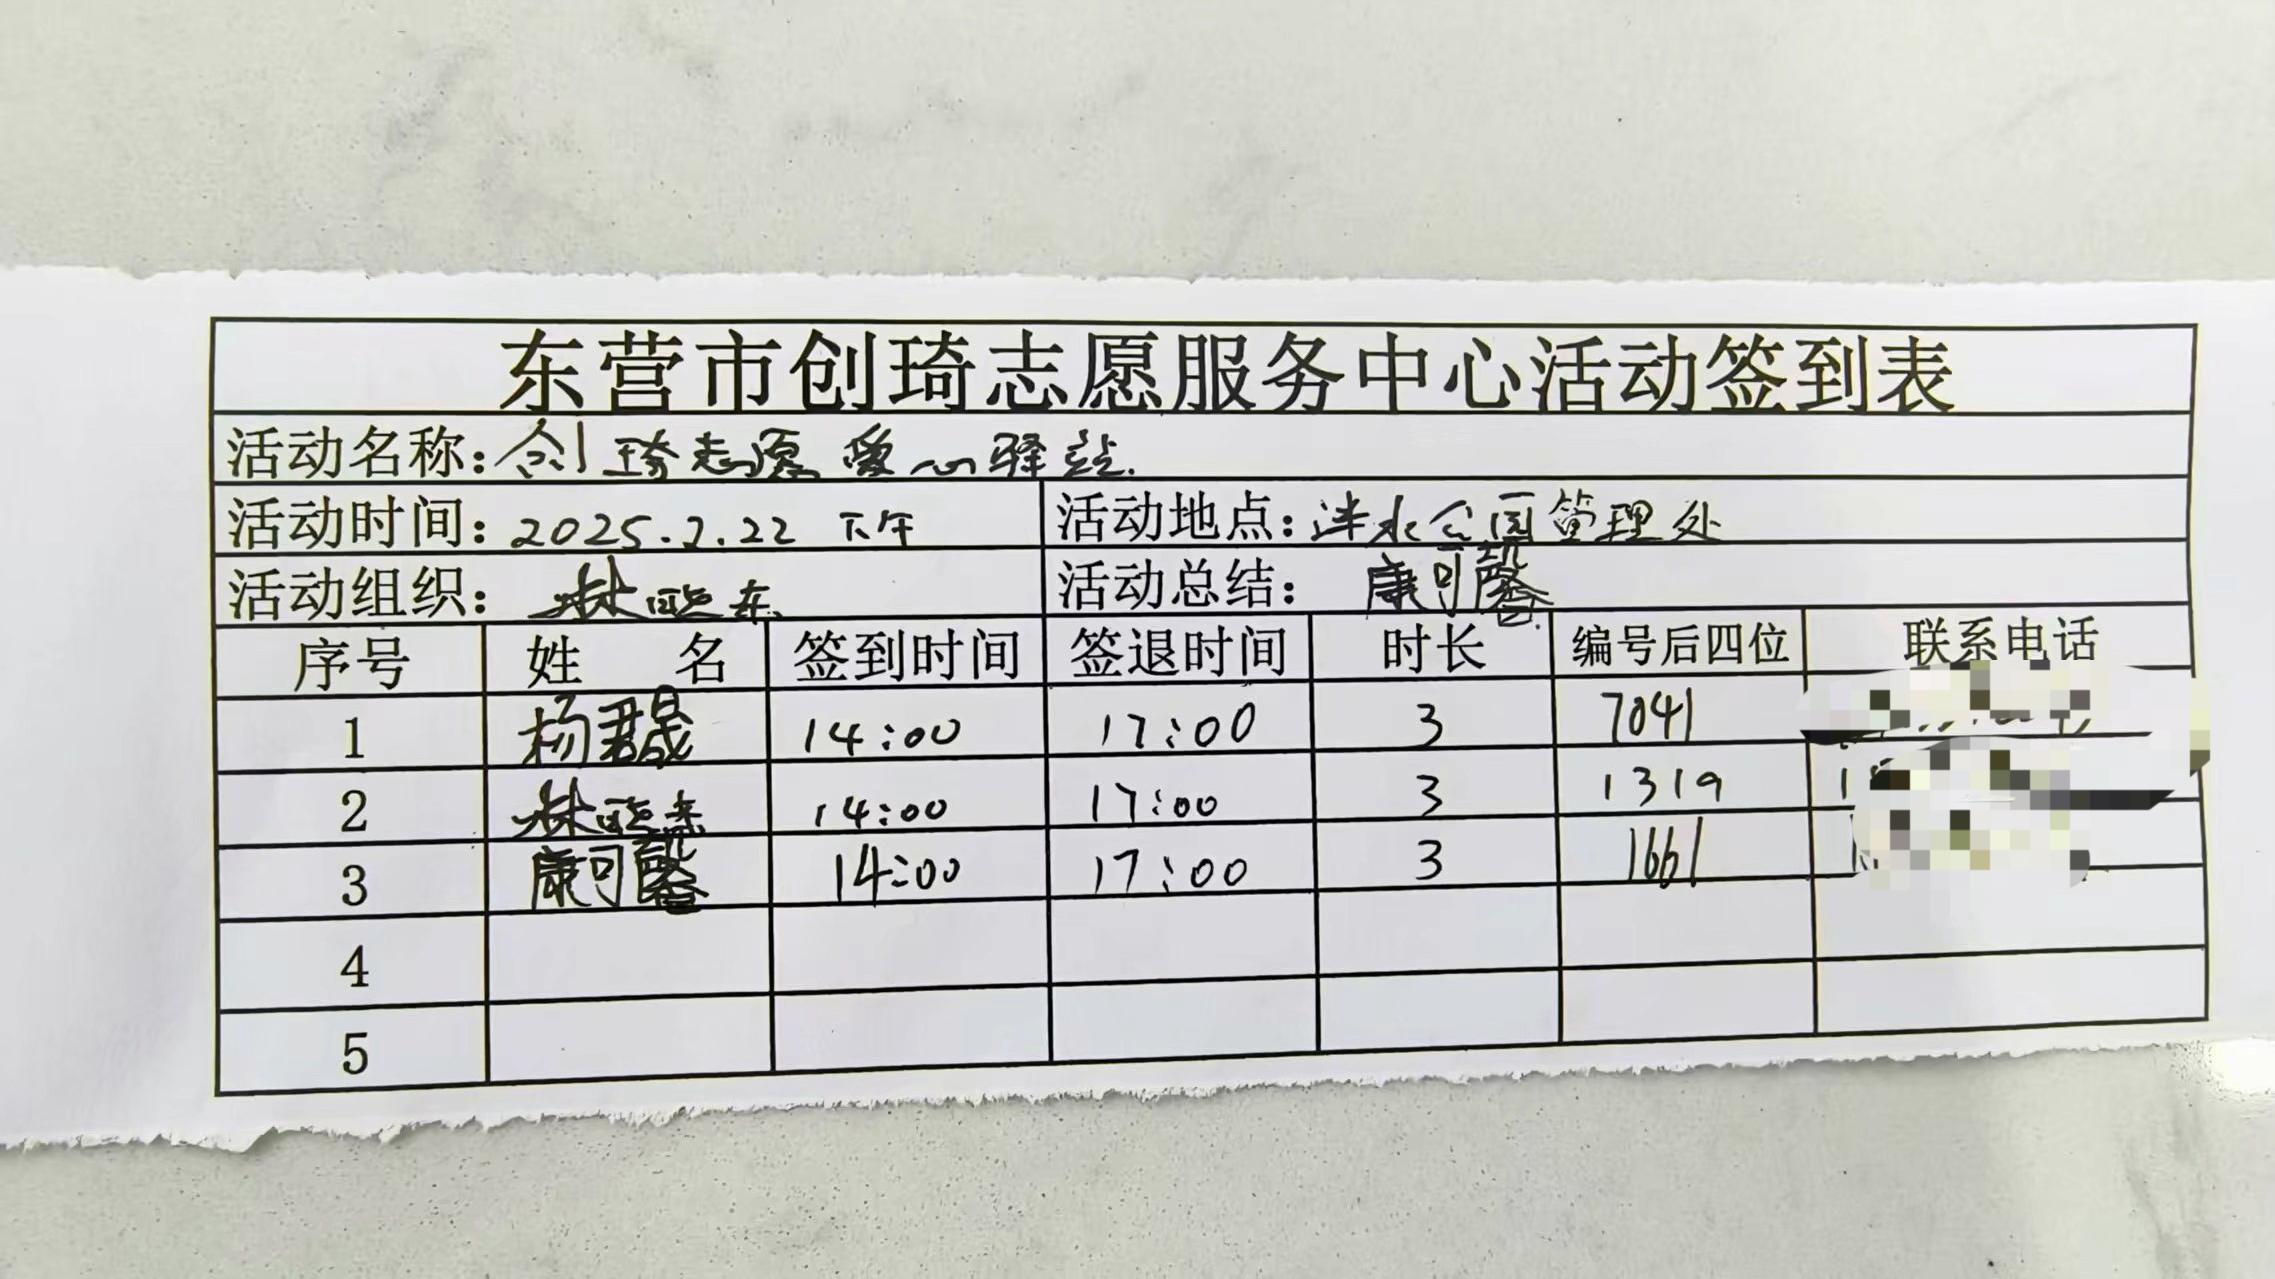 东营市创琦志愿服务中心活动签到表
活动名称：创琦志愿爱心驿站.
活动时间：2025.2.22 下午 活动地点：泮水公园管理处
活动组织： 林 东 活动总结： 康可馨
序号 姓 名 签到时间 签退时间 时长 编号后四位 联系电话
1 杨君晟 14:00 17:00 3 7041
2 林 东 14:00 17:00 3 1319
3 康可馨 14:00 17:00 3 1661
4
5